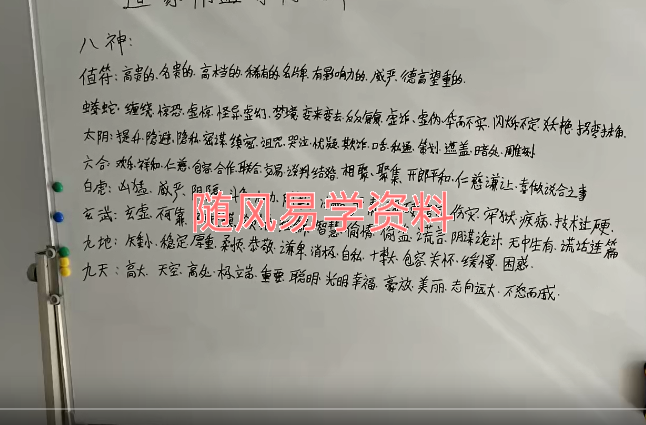 八神：
值符：高贵的、名贵的、高档的、稀有的、名牌、有影响力的、威严、德高望重的、
螣蛇：缠绕、惊恐、虚惊、怪异、虚幻、梦境、变来变去、反反复复、虚诈、虚伪、华而不实、闪烁不定、妖艳、拐弯抹角、
太阴：提升、隐避、隐私、密谋、缜密、诅咒、哭泣、忧疑、欺诈、口舌、私通、策划、遮盖、暗处、雕刻
六合：欢乐、祥和、仁慈、包容、合作、联合、交易、谈判、结婚、相聚、聚集、开朗、平和、仁慈、谦让、喜做说合之事
白虎：凶猛、威严、伤灾、牢狱、疾病、技术过硬、
玄武：玄虚、智慧、偷情、偷盗、谎言、阴谋诡计、无中生有、谎话连篇
九地：矮小、稳定、厚重、柔顺、恭敬、谦卑、消极、自私、包容、关怀、缓慢、困惑、
九天：高大、天空、高处、极端、重要、聪明、光明、幸福、豪放、美丽、志向远大、不怒而威、
随风易学资料